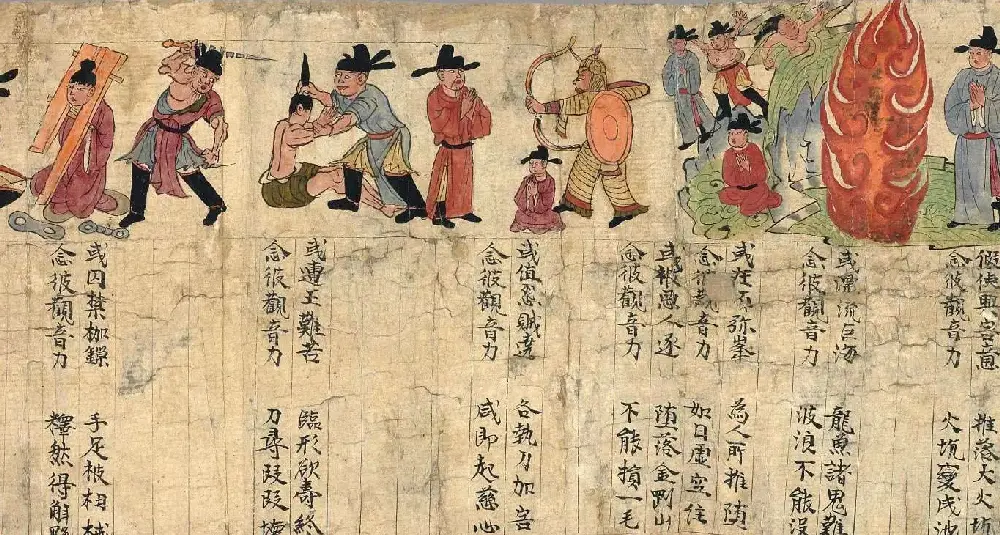 假使興害意 推落大火坑
念彼觀音力 火坑變成池
或漂流巨海 龍魚諸鬼難
念彼觀音力 波浪不能沒
或在須弥峯 為人所推墮
念彼觀音力 如日虛空住
或被惡人逐 墮落金剛山
念彼觀音力 不能損一毛
或值怨賊遶 各執刀加害
念彼觀音力 咸即起慈心
或遭王難苦 臨形欲壽終
念彼觀音力 刀尋段段壞
或囚禁枷鎖 手足被杻械
念彼觀音力 釋然得解脫